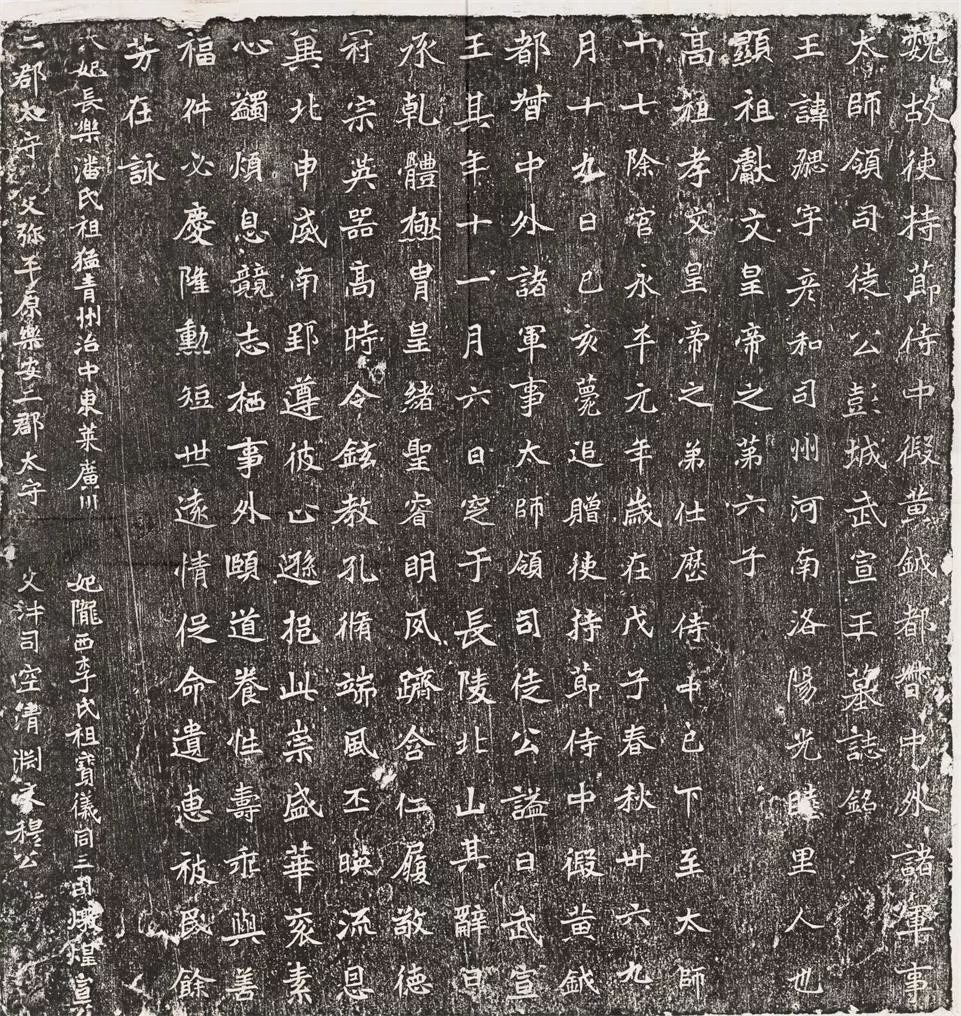 魏故使持節侍中假黃鉞都督中外諸軍事
太師領司徒公彭城武宣王墓誌銘
王諱勰字彦和司州河南洛陽光睦里人也
顯祖獻文皇帝之第六子
高祖孝文皇帝之弟仕歷侍中已下至太師
十七除官永平元年歲在戊子春秋卅六九
月十九日己亥薨追贈使持節侍中假黃鉞
都督中外諸軍事太師領司徒公謚曰武宣
王其年十一月六日窆于長陵北山其辭曰
承乹體極胄皇緒聖睿明夙躋含仁履敬德
冠宗英器高時令鉉教孔脩端風丕暎流恩
冀北申威南郢遵彼止遜挹此崇盛華衮素
心蠲煩息競志栖事外頤道養性壽乖與善
福舛必慶隆勳短世遠情促命遺惠被民餘
芳在詠
太妃長樂潘氏祖猛青州治中東萊廣川
二郡太守 父弥平原樂安二郡太守
妃隴西李氏祖寶儀同三司燉煌宣公
父沖司空清淵文穆公